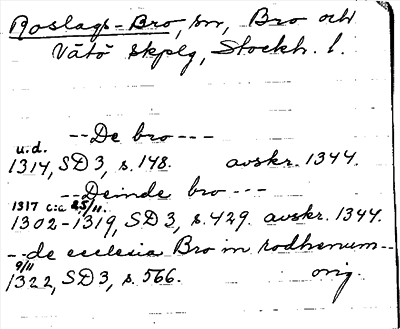 Roslags-Bro, sn, Bro och
Vätö skplg, Stockh. l.
--De bro---
u.d.
1314, SD 3, s. 148. avskr. 1344.
--Deinde bro---
1317 c:a 25/11.
1302-1319, SD 3, s. 429. avskr. 1344.
--de ecclesia Bro in rodhenum--
9/11
1322, SD 3, s. 566. orig.